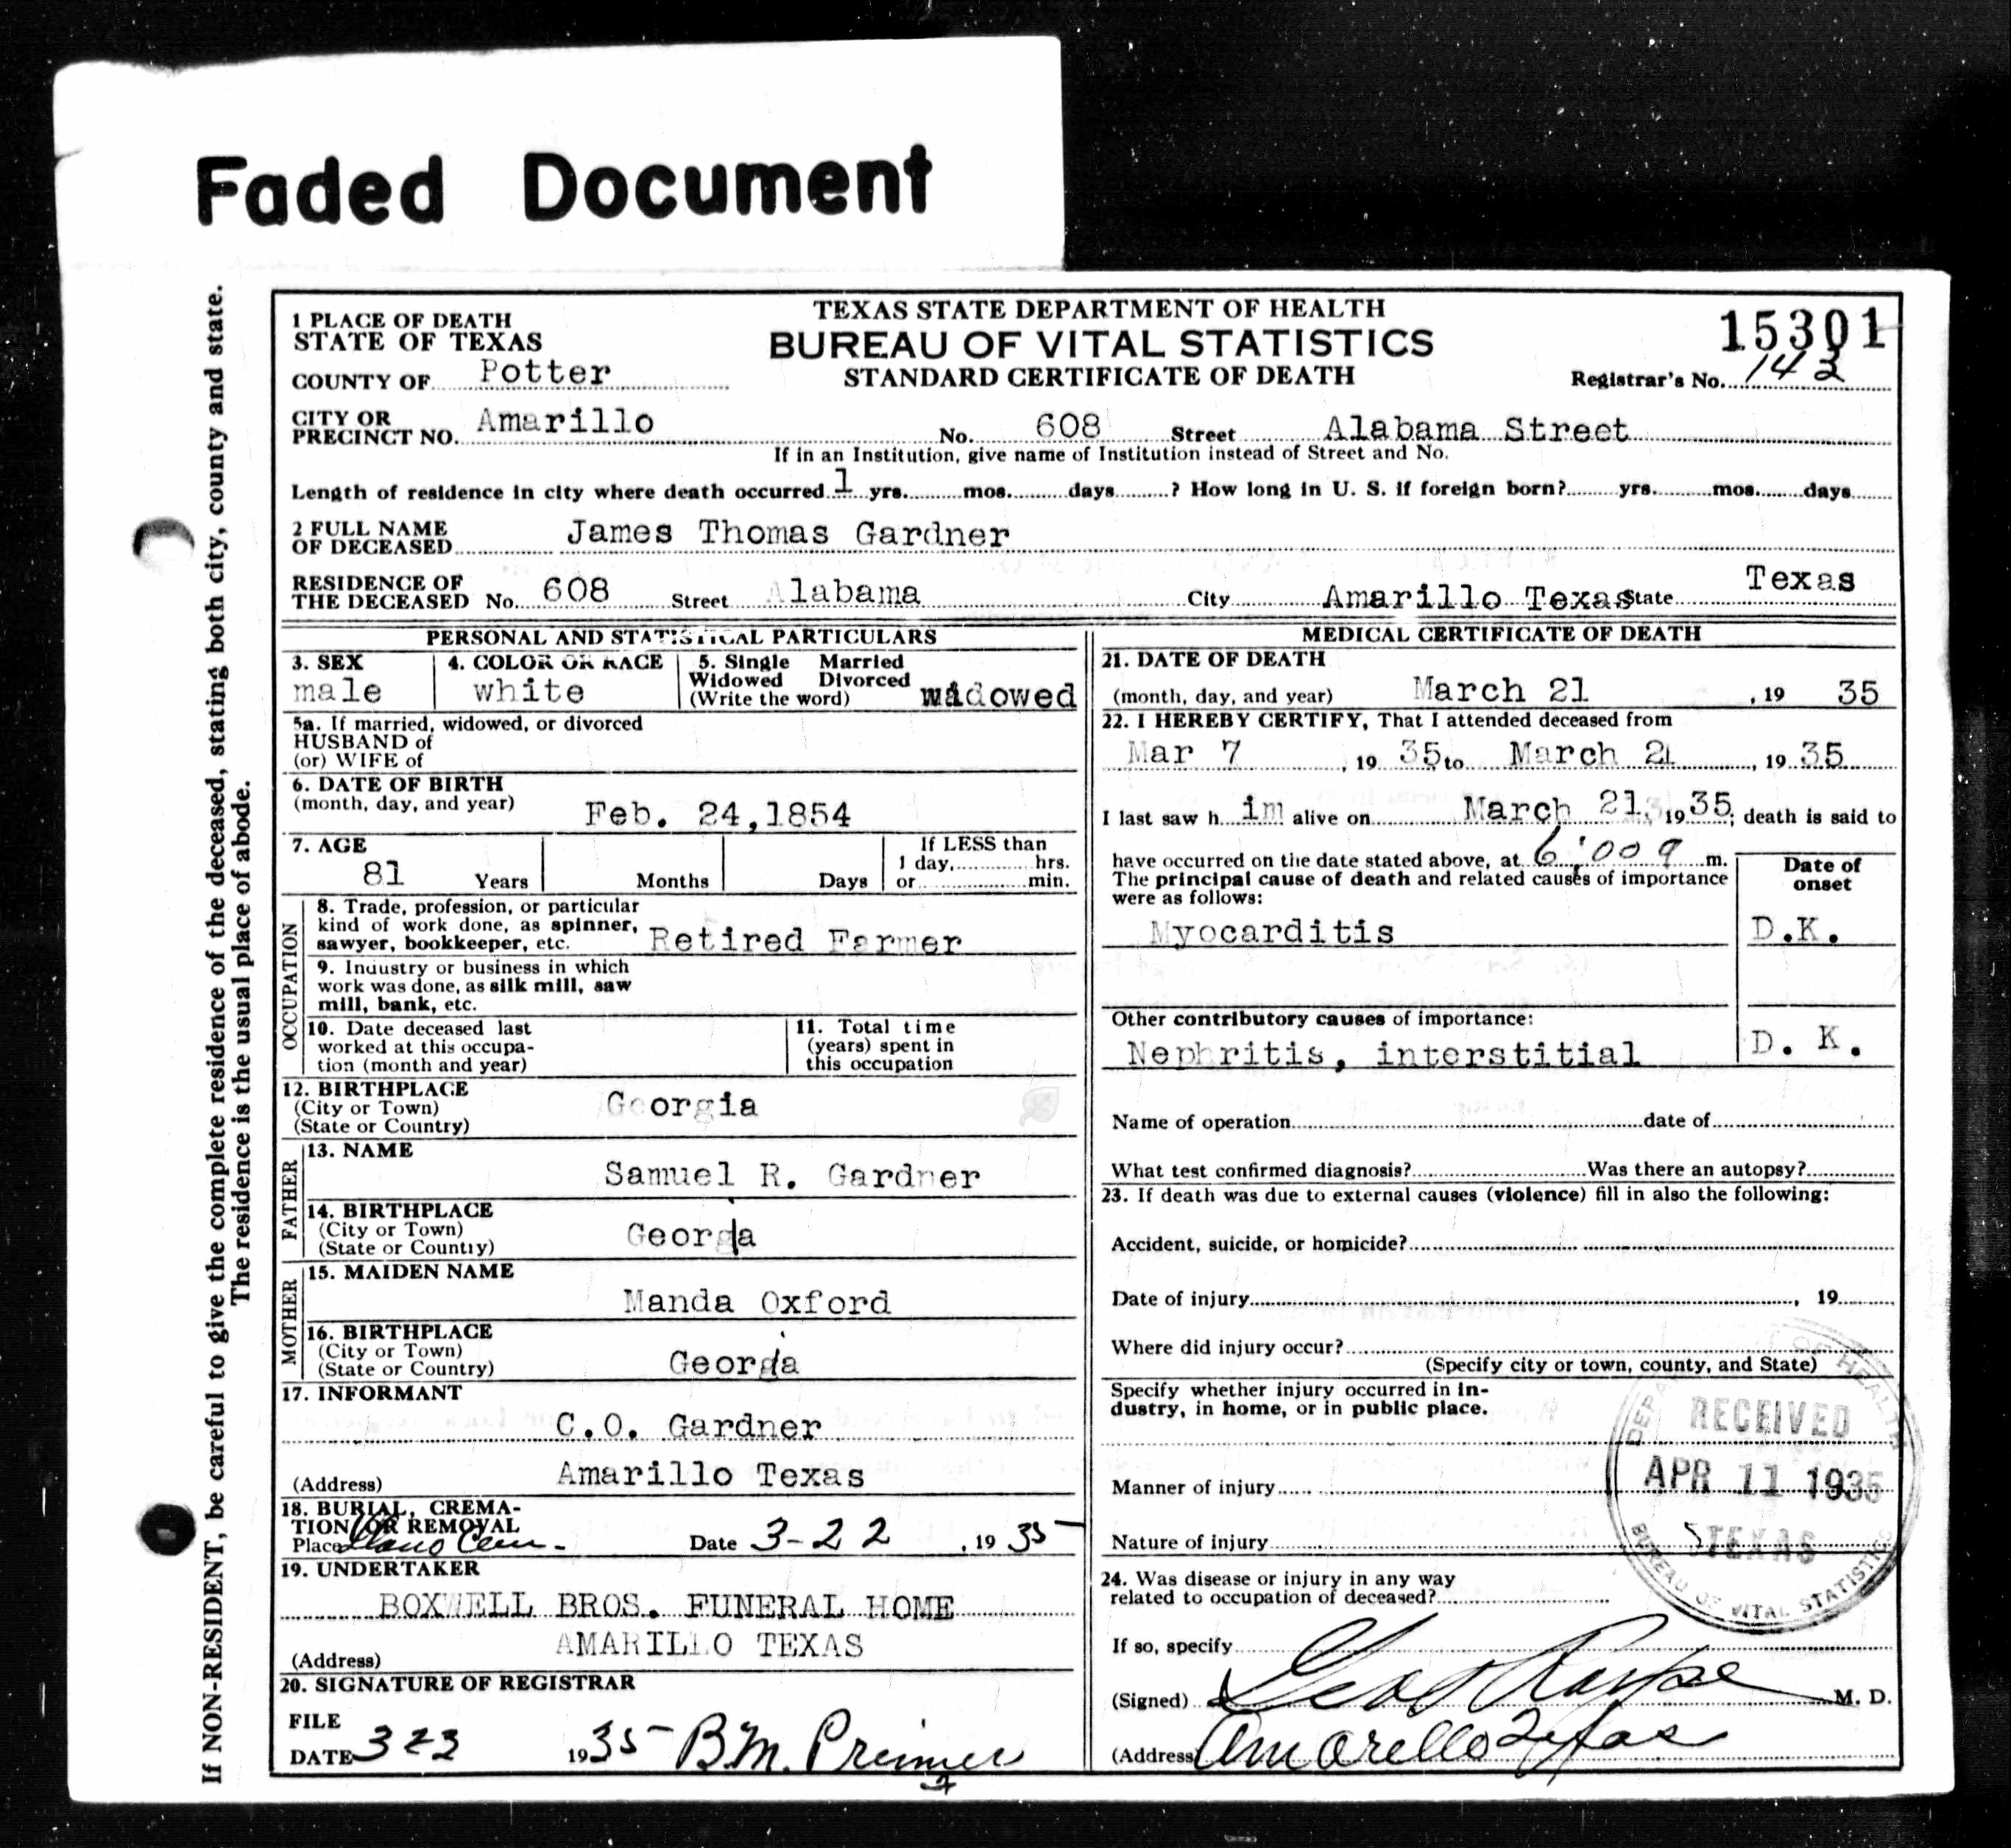 Faded Document
If NON-RESIDENT, be careful to give the complete residence of the deceased, stating both city, county and state.
The residence is the usual place of abode.
1 PLACE OF DEATH
STATE OF TEXAS
COUNTY OF Potter
TEXAS STATE DEPARTMENT OF HEALTH
BUREAU OF VITAL STATISTICS
STANDARD CERTIFICATE OF DEATH
15301
Registrar's No. 143
CITY OR
PRECINCT NO. Amarillo No. 608 Street Alabama Street
If in an Institution, give name of Institution instead of Street and No.
Length of residence in city where death occurred 1 yrs. mos. days ? How long in U. S. if foreign born? yrs. mos. days
2 FULL NAME
OF DECEASED James Thomas Gardner
RESIDENCE OF
THE DECEASED No. 608 Street Alabama City Amarillo Texas State Texas
PERSONAL AND STATISTICAL PARTICULARS
3. SEX
male
4. COLOR OR RACE
white
5. Single Married
Widowed Divorced
(Write the word) widowed
5a. If married, widowed, or divorced
HUSBAND of
(or) WIFE of
6. DATE OF BIRTH
(month, day, and year) Feb. 24,1854
7. AGE
81 Years Months Days
If LESS than
1 day, hrs.
or min.
OCCUPATION
8. Trade, profession, or particular
kind of work done, as spinner,
sawyer, bookkeeper, etc. Retired Farmer
9. Industry or business in which
work was done, as silk mill, saw
mill, bank, etc.
10. Date deceased last
worked at this occupa-
tion (month and year)
11. Total time
(years) spent in
this occupation
12. BIRTHPLACE
(City or Town)
(State or Country)
Georgia
FATHER
13. NAME
Samuel R. Gardner
14. BIRTHPLACE
(City or Town)
(State or Country)
Georgia
MOTHER
15. MAIDEN NAME
Manda Oxford
16. BIRTHPLACE
(City or Town)
(State or Country)
Georgia
17. INFORMANT
C.O. Gardner
(Address) Amarillo Texas
18. BURIAL, CREMA-
TION OR REMOVAL
Place Llano Cem. Date 3-22, 19 35
19. UNDERTAKER
BOXWELL BROS. FUNERAL HOME
AMARILLO TEXAS
(Address)
20. SIGNATURE OF REGISTRAR
FILE
DATE 3 23 1935 B.M. Primer
MEDICAL CERTIFICATE OF DEATH
21. DATE OF DEATH
(month, day, and year) March 21, 19 35
22. I HEREBY CERTIFY, That I attended deceased from
Mar 7, 19 35 to March 21, 19 35
I last saw h im alive on March 21, 19 35; death is said to
have occurred on the date stated above, at 6:00 a m.
The principal cause of death and related causes of importance
were as follows:
Date of
onset
Myocarditis D.K.
Other contributory causes of importance:
Nephritis, interstitial D. K.
Name of operation date of
What test confirmed diagnosis? Was there an autopsy?
23. If death was due to external causes (violence) fill in also the following:
Accident, suicide, or homicide?
Date of injury , 19
Where did injury occur?
(Specify city or town, county, and State)
Specify whether injury occurred in in-
dustry, in home, or in public place.
Manner of injury
Nature of injury
24. Was disease or injury in any way
related to occupation of deceased?
If so, specify
(Signed) M. D.
(Address) Amarillo Texas
DEPARTMENT OF HEALTH
RECEIVED
APR 11 1935
TEXAS
BUREAU OF VITAL STATISTICS